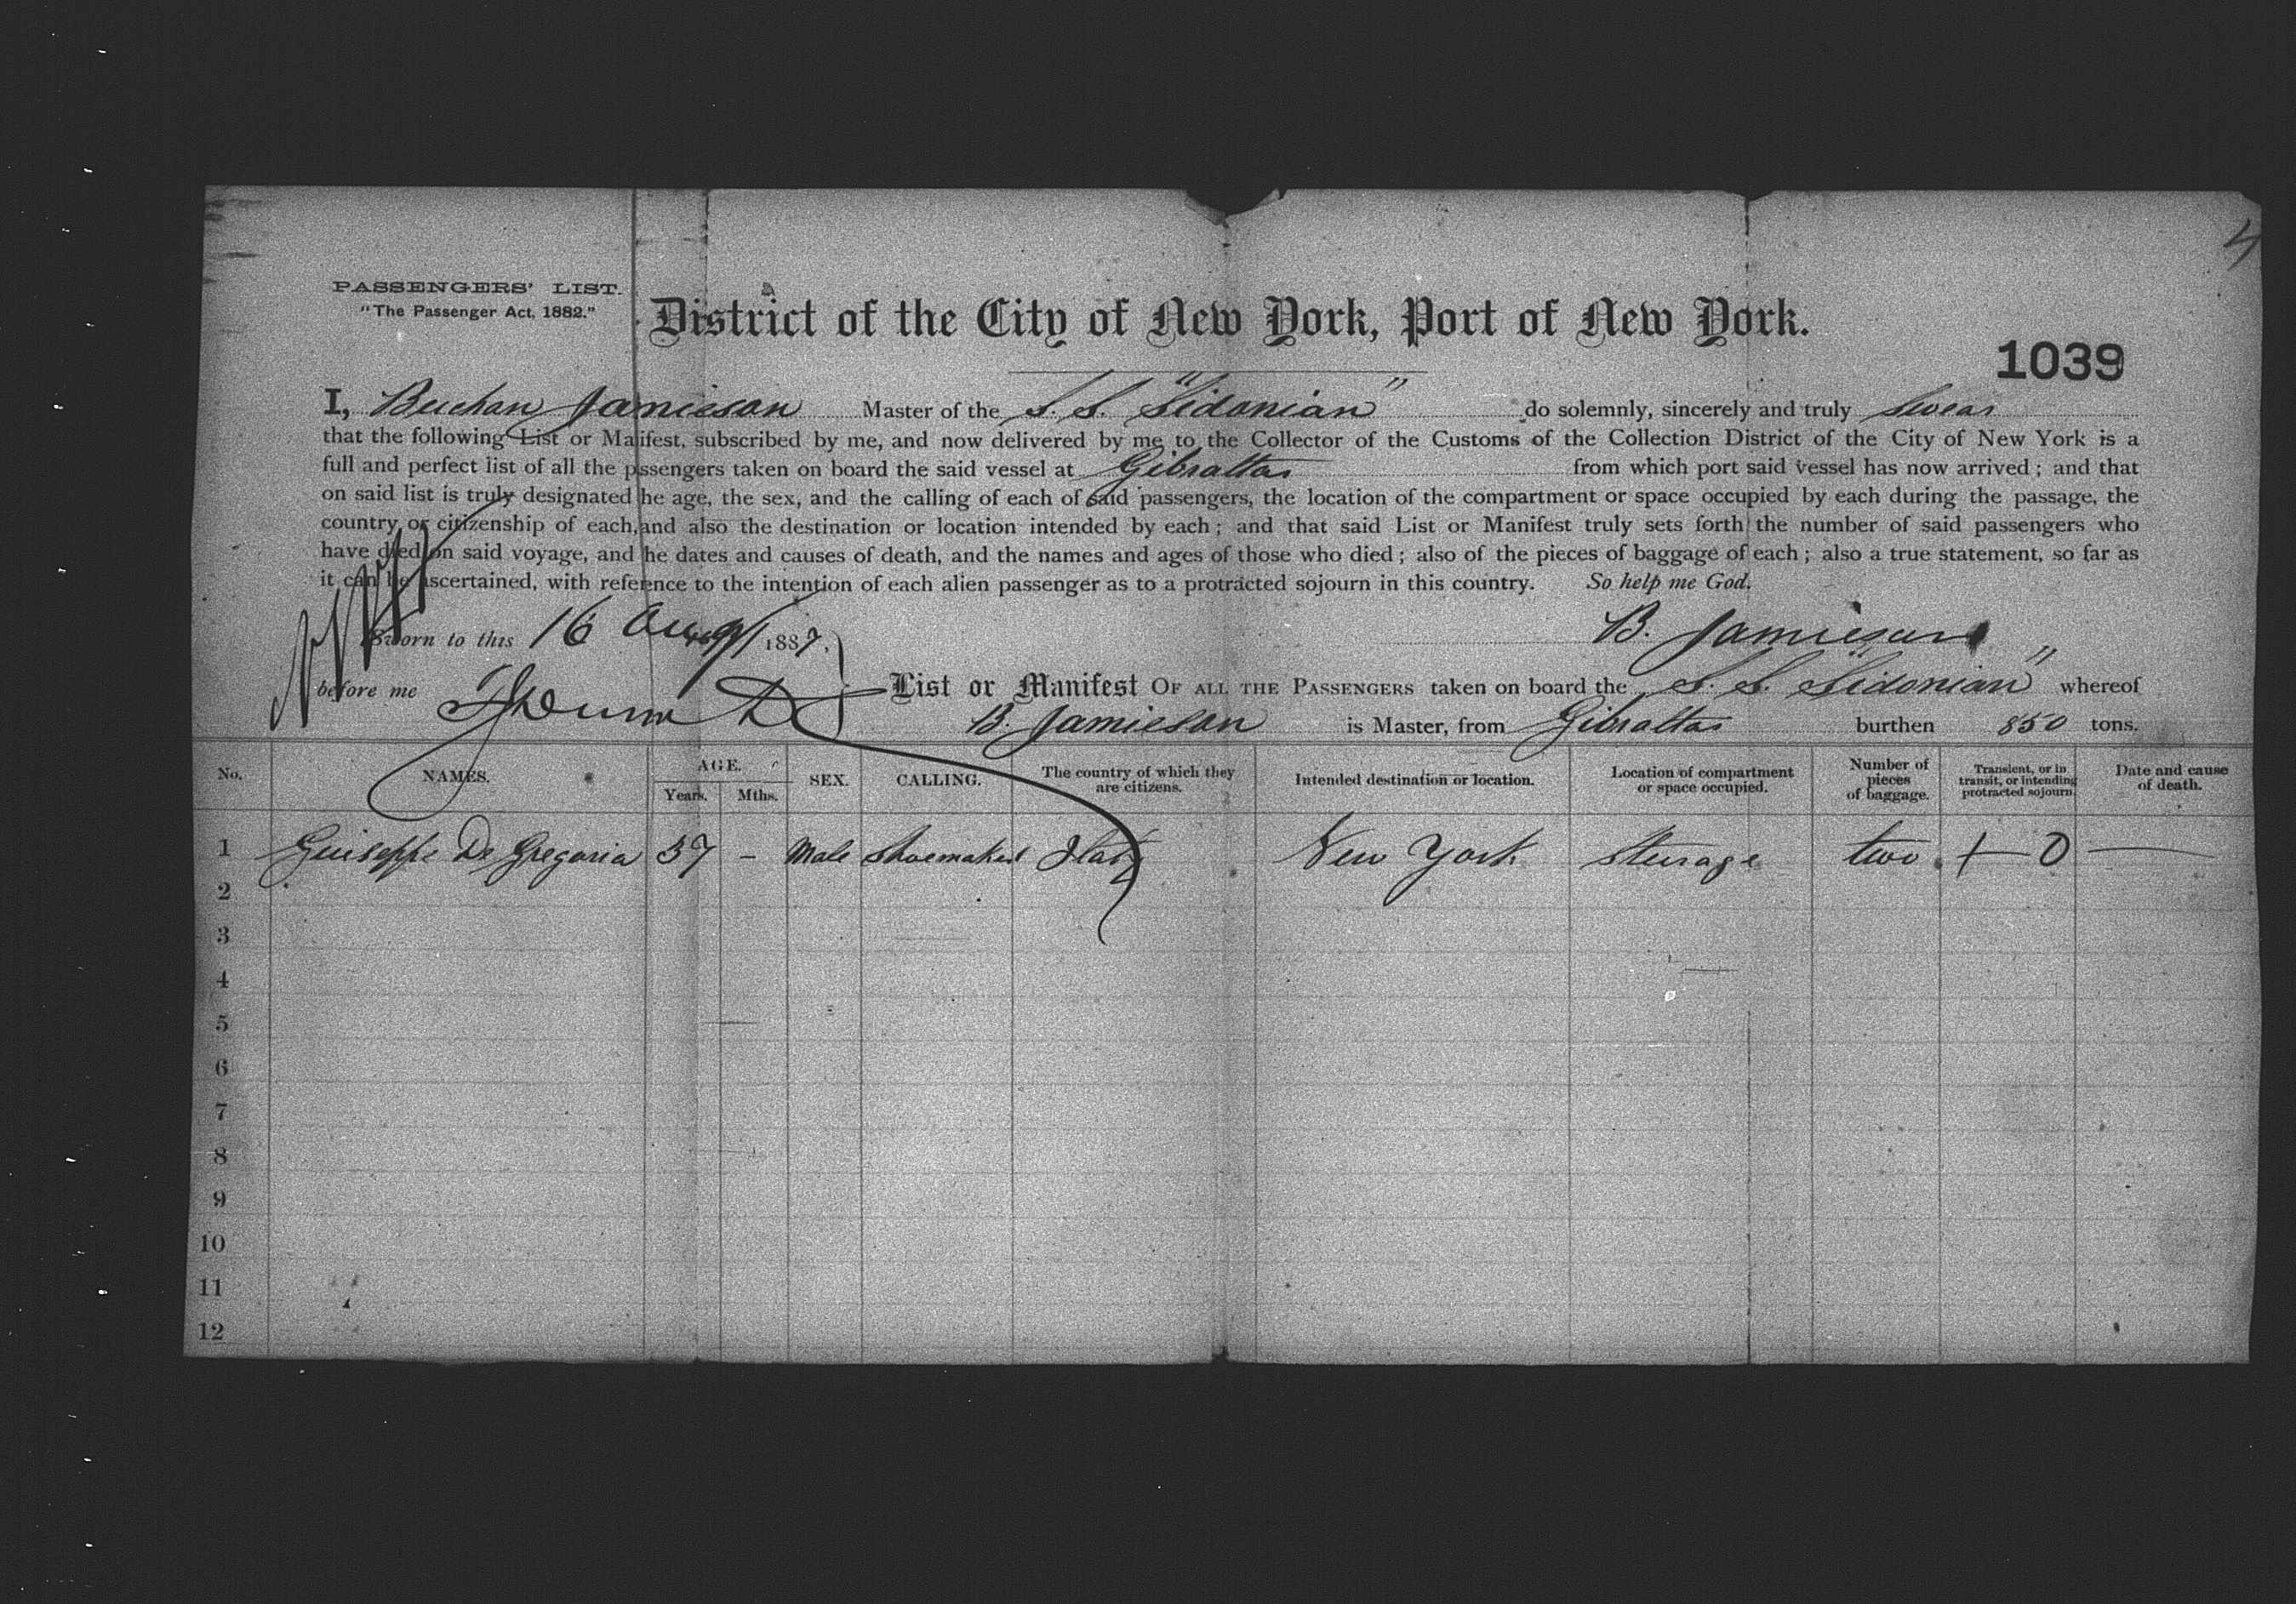 4
PASSENGERS' LIST.
"The Passenger Act, 1882."
District of the City of New York, Port of New York.
1039
I, Buchan Jamieson Master of the S. S. "Sidonian" do solemnly, sincerely and truly swear
that the following List or Manifest, subscribed by me, and now delivered by me to the Collector of the Customs of the Collection District of the City of New York is a
full and perfect list of all the passengers taken on board the said vessel at Gibraltar from which port said vessel has now arrived; and that
on said list is truly designated the age, the sex, and the calling of each of said passengers, the location of the compartment or space occupied by each during the passage, the
country or citizenship of each, and also the destination or location intended by each; and that said List or Manifest truly sets forth the number of said passengers who
have died on said voyage, and the dates and causes of death, and the names and ages of those who died; also of the pieces of baggage of each; also a true statement, so far as
it can be ascertained, with reference to the intention of each alien passenger as to a protracted sojourn in this country. So help me God.
Sworn to this 16 Aug 1887, B. Jamieson
before me List or Manifest OF ALL THE PASSENGERS taken on board the S. S. "Sidonian" whereof
B. Jamieson is Master, from Gibraltar burthen 850 tons.
No. NAMES. AGE. Years. Mths. SEX. CALLING. The country of which they are citizens. Intended destination or location. Location of compartment or space occupied. Number of pieces of baggage. Transient, or in transit, or intending protracted sojourn. Date and cause of death.
1 Guiseppe De Gregoria 37 - Male Shoemaker Italy New York Steerage two
2
3
4
5
6
7
8
9
10
11
12